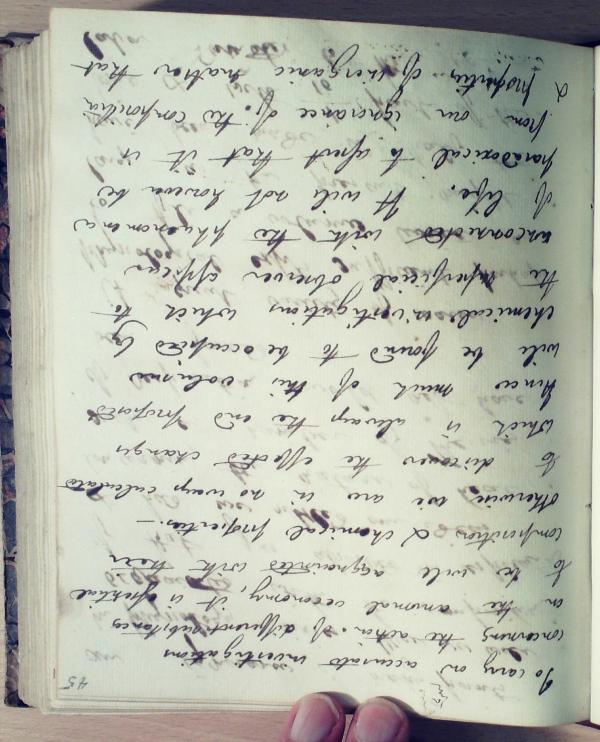 45
To carry on accurate investigations
concerning the action of different substances
on the animal oeconomy, it is essential
to be well acquainted with their
composition & chemical properties. —
otherwise we are in no ways calculated
to discover the effected changes
which is always the end proposed
Hence much of this volume
will be found to be occupied by
chemical investigations which to
the superficial observer appear
unconnected with the phænomena
of life. It will not however be
paradoxical to assert that it is
from our ignorance of the composition
& properties of inorganic matter that